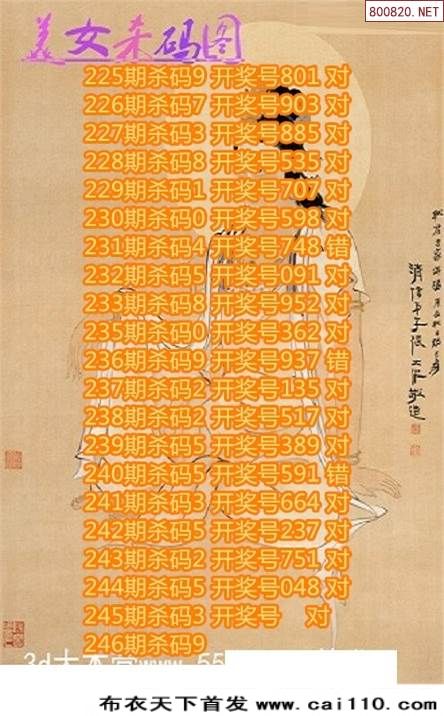 800820.NET
美女杀码图
225期杀码9 开奖号801 对
226期杀码7 开奖号903 对
227期杀码3 开奖号885 对
228期杀码8 开奖号535 对
229期杀码1 开奖号707 对
230期杀码0 开奖号598 对
231期杀码4 开奖号748 错
232期杀码5 开奖号091 对
233期杀码8 开奖号952 对
235期杀码0 开奖号362 对
236期杀码9 开奖号937 错
237期杀码2 开奖号135 对
238期杀码2 开奖号517 对
239期杀码5 开奖号389 对
240期杀码5 开奖号591 错
241期杀码3 开奖号664 对
242期杀码5 开奖号237 对
243期杀码2 开奖号751 对
244期杀码5 开奖号048 对
245期杀码3 开奖号 对
246期杀码9
布衣天下首发 www.cai110.com